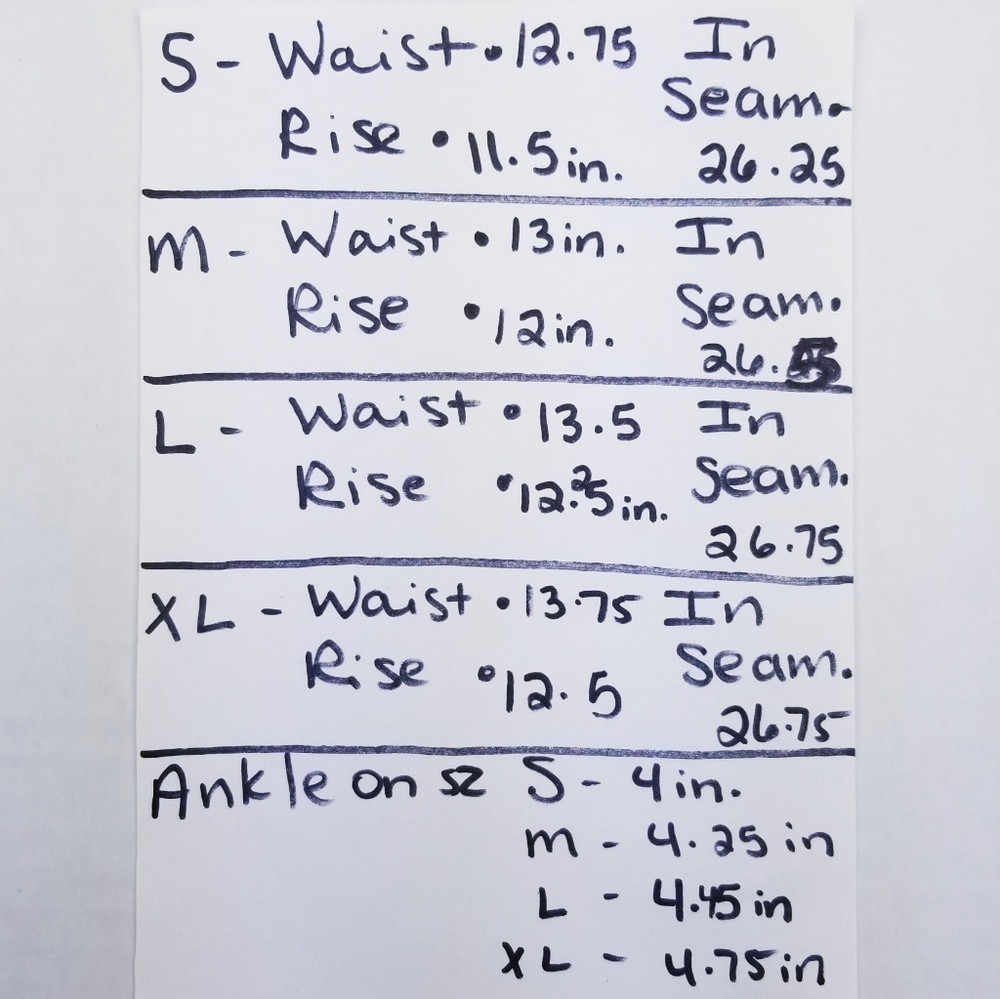 S - Waist • 12.75 In
Seam.
Rise • 11.5 in. 26.25
M - Waist • 13 in. In
Rise • 12 in. Seam.
26.
L - Waist • 13.5 In
Rise • 12.25 in. Seam.
26.75
XL - Waist • 13.75 In
Rise • 12.5 Seam.
26.75
Ankle on sz S - 4 in.
M - 4.25 in
L - 4.45 in
XL - 4.75 in